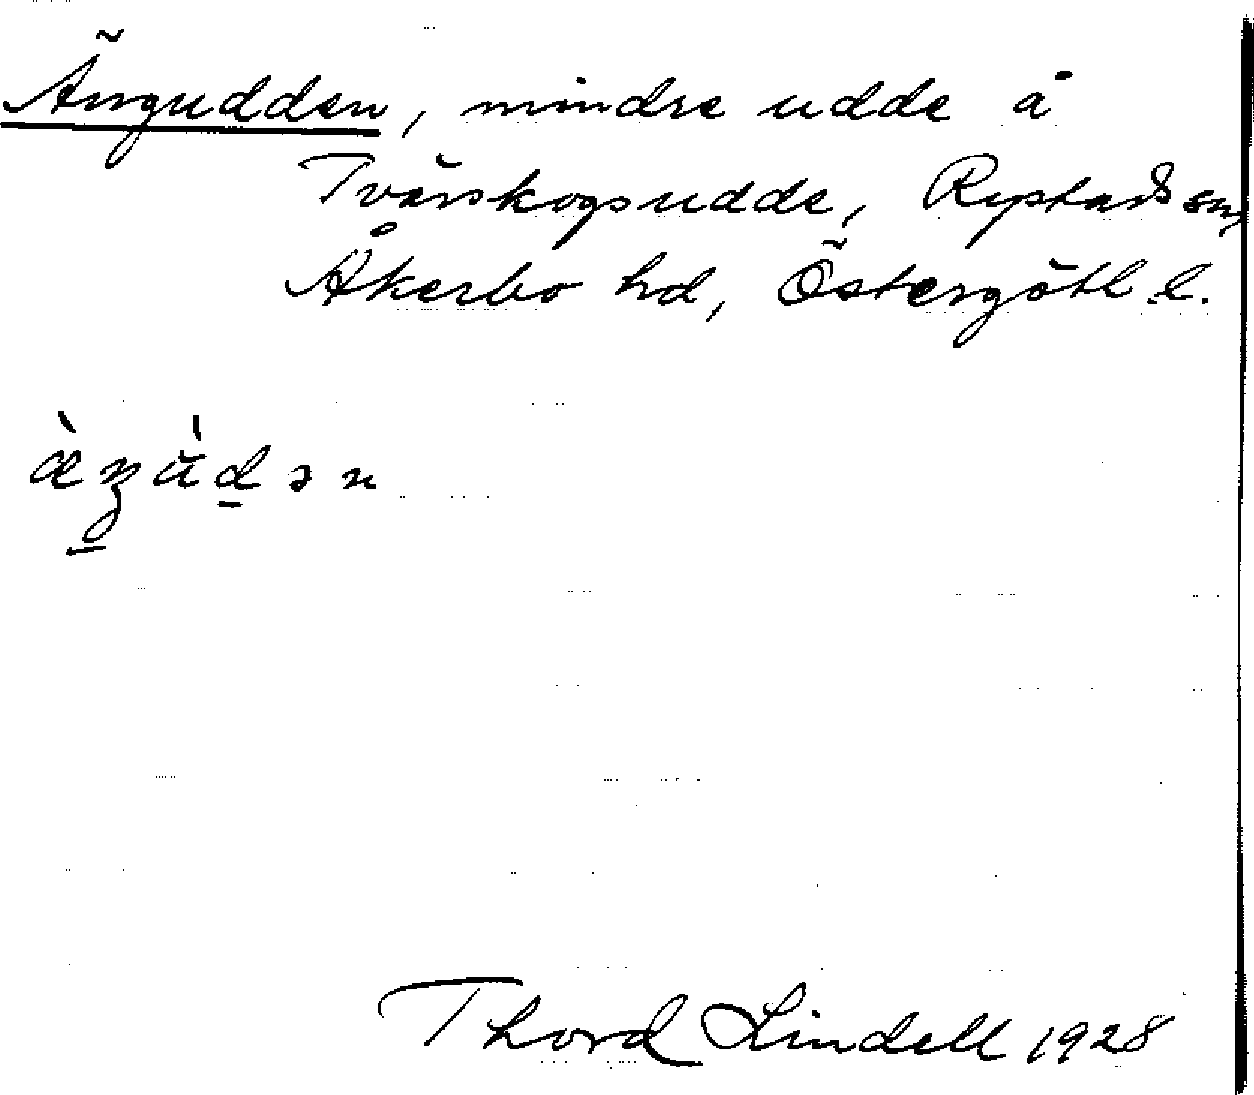 Ängudden, mindre udde å
Tvärskogsudde, Rystads sn,
Åkerbo hd, Östergötl. l.
Thord Lindell 1928